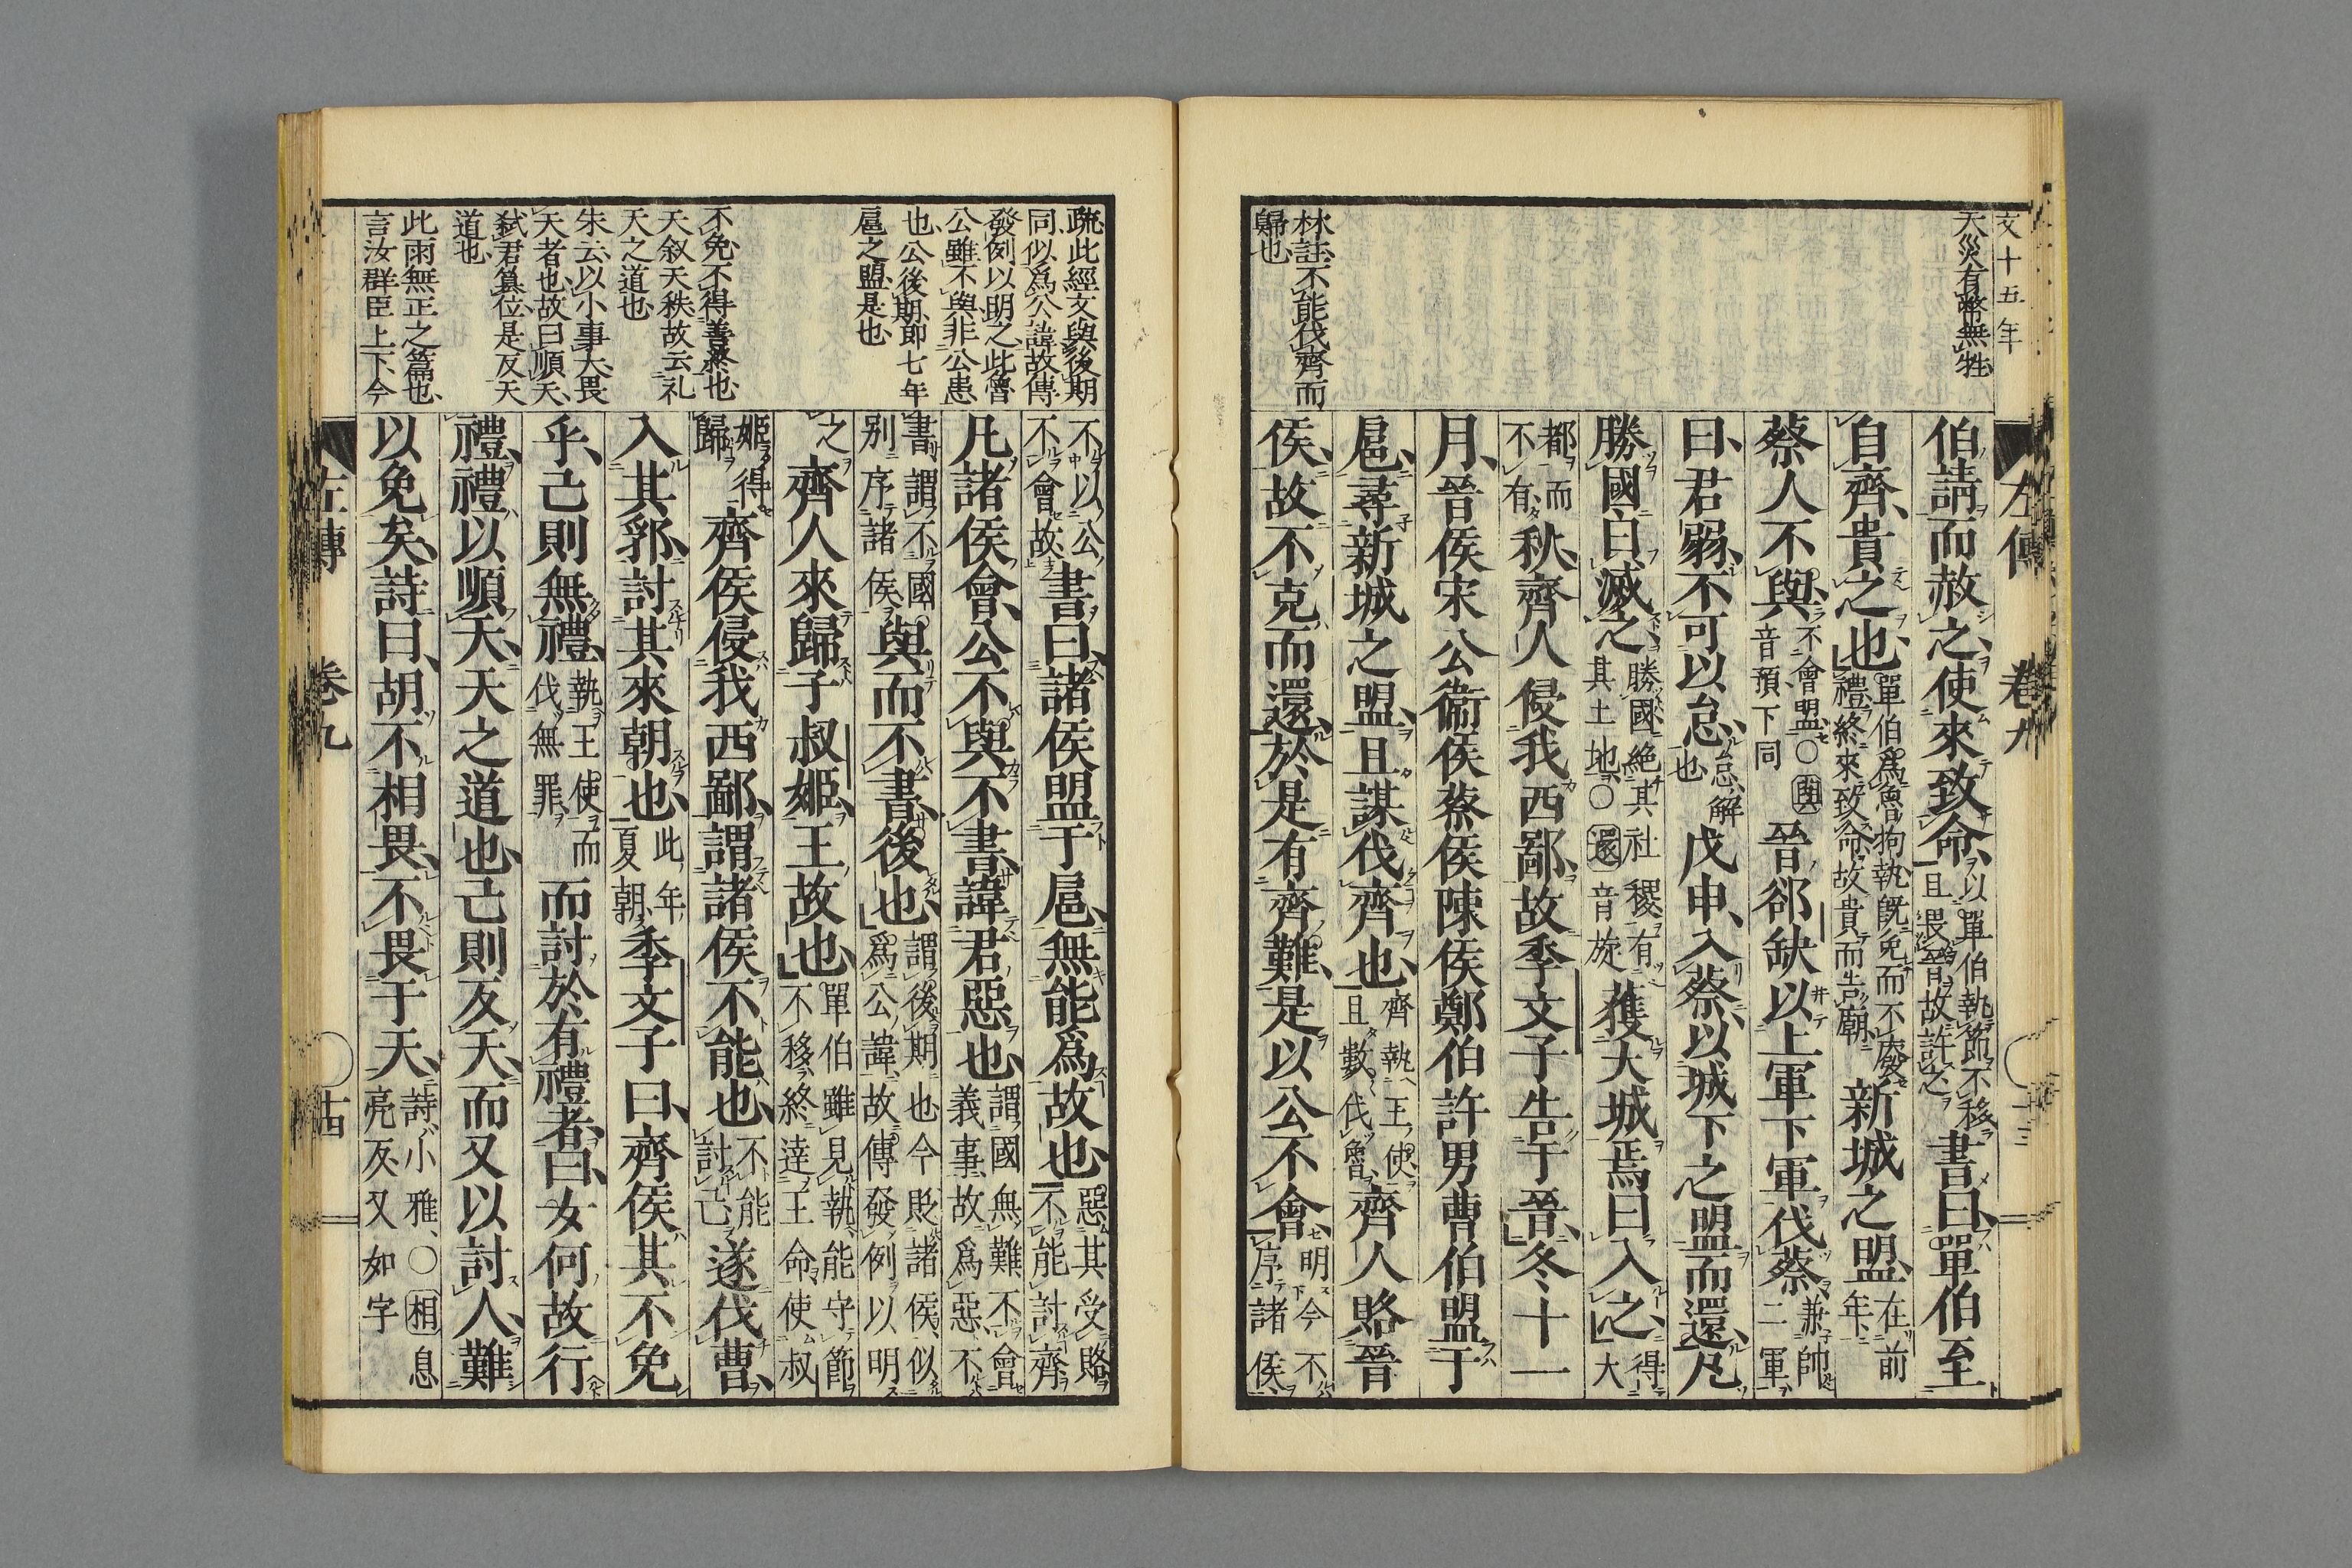 文十五年
天災有幣無牲
林註不能伐齊而
歸也
左傳 卷九 十三
伯請而赦之使來致命以單伯執節不移且畏晉故許之書曰單伯至
自齊貴之也單伯爲魯拘執既免而不廢禮終來致命故貴而告廟新城之盟在前年
蔡人不與不會盟○與音預下同晉郤缺以上軍下軍伐蔡兼帥二軍
曰君弱不可以怠怠解也戊申入蔡以城下之盟而還凡
勝國曰滅之勝國絶其社稷有其土地○還音旋獲大城焉曰入之得大
都而不有秋齊人侵我西鄙故季文子告于晉冬十一
月晉侯宋公衞侯蔡侯陳侯鄭伯許男曹伯盟于
扈尋新城之盟且謀伐齊也齊執王使且數伐魯齊人賂晉
侯故不克而還於是有齊難是以公不會明今不序諸侯
疏此經文與後期
同似爲公諱故傳
發例以明之此魯
公雖不與非公患
也公後期即七年
扈之盟是也
不免不得善終也
天叙天秩故云礼
天之道也
朱云以小事大畏
天者也故曰順天
弑君簒位是反天
道也
此雨無正之篇也
言汝群臣上下今
不以公不會故書曰諸侯盟于扈無能爲故也惡其受賂不能討齊
凡諸侯會公不與不書諱君惡也謂國無難不會義事故爲惡不
書謂不國別序諸侯與而不書後也謂後期也今貶諸侯似爲公諱故傳發例以明
之齊人來歸子叔姬王故也單伯雖見執能守節不移終達王命使叔
姬得歸齊侯侵我西鄙謂諸侯不能也不能討己遂伐曹
入其郛討其來朝也此年夏朝季文子曰齊侯其不免
乎己則無禮執王使而伐無罪而討於有禮者曰女何故行
禮禮以順天天之道也己則反天而又以討人難
以免矣詩曰胡不相畏不畏于天詩小雅○相息亮反又如字
左傳 卷九 十四